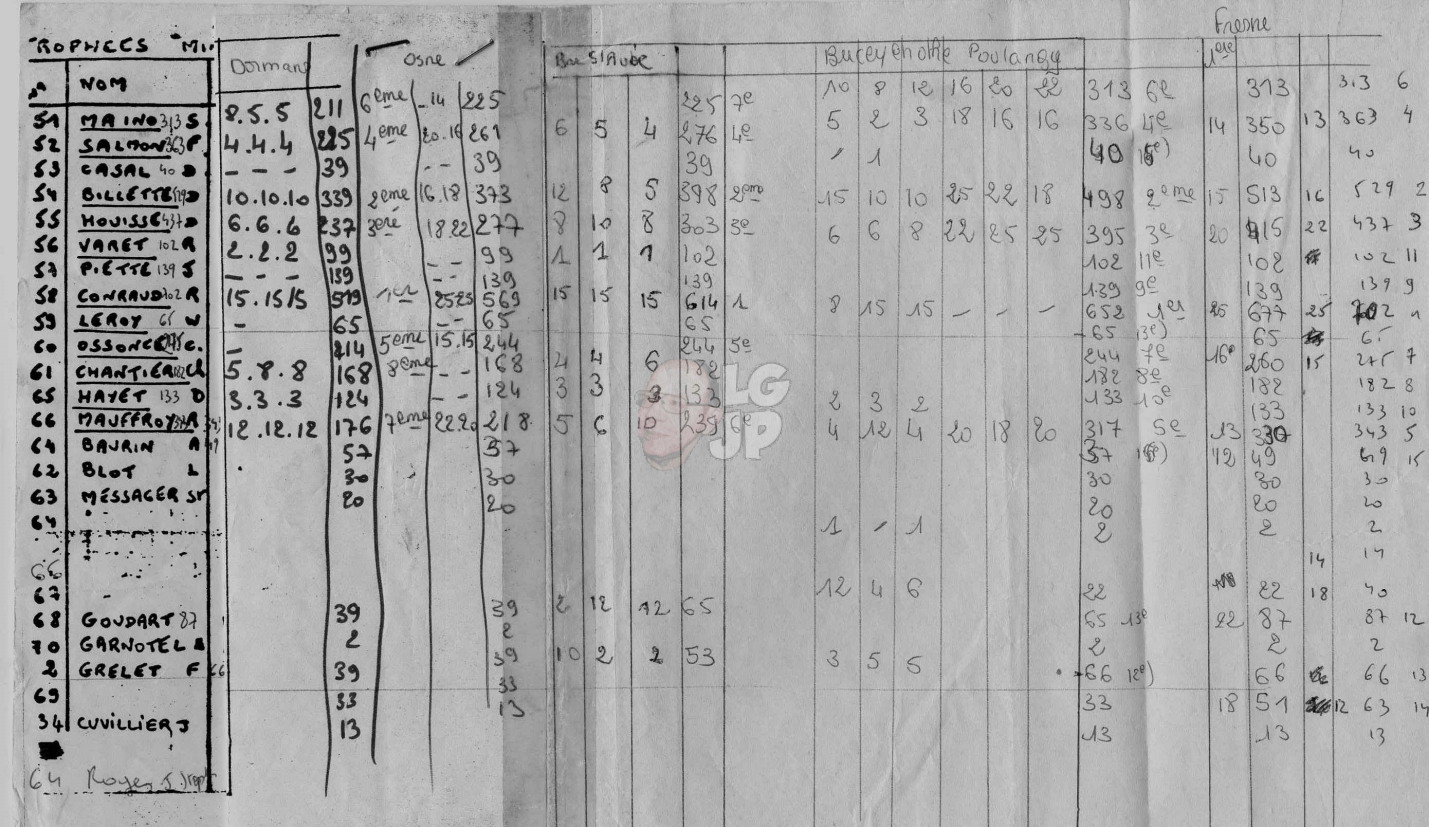 Fresne
TROPHEES MI Dormans Osne Bar S/Aube Bucey Poulangy 1ere
N° NOM
51 MAINO 313 S 8.5.5 211 6eme -.14 225 225 7e 10 8 12 16 20 22 313 6e 313 313 6
52 SALMON 363 P. 4.4.4 225 4eme 20.16 261 6 5 4 276 4e 5 2 3 18 16 16 336 4e 14 350 13 363 4
53 CASAL 40 D - - - 39 - - 39 39 / 1 40 40 40
54 BILLETTE 529 D 10.10.10 339 2eme 16.18 373 12 8 5 398 2eme 15 10 10 25 22 18 498 2eme 15 513 16 529 2
55 HOUISSE 437 D 6.6.6 237 3eme 18.22 277 8 10 8 303 3e 6 6 8 22 25 25 395 3e 20 415 22 437 3
56 VARET 102 R 2.2.2 99 - - 99 1 1 1 102 102 11e 102 102 11
57 PIETTE 139 S - - - 139 - - 139 139 139 9e 139 139 9
58 CONRAUD 702 R 15.15 15 519 1er 25 25 569 15 15 15 614 1 8 15 15 - - - 652 1er 25 677 25 702 1
59 LEROY 65 W - 65 - - 65 65 65 13e) 65 65
60 OSSONCE 275 C. - 214 5eme 15.15 244 244 5e 244 7e 16e 260 15 275 7
61 CHANTIER 182 Ch 5.8.8 168 8eme - - 168 4 4 6 182 182 8e 182 182 8
65 HAYET 133 D 3.3.3 124 - - 124 3 3 3 133 2 3 2 133 10e 133 133 10
66 MAUFFROY R 12.12.12 176 7eme 22.20 218 5 6 10 239 6e 4 12 4 20 18 20 317 5e 13 330 343 5
64 BAURIN A 57 57 57 12 49 69 15
62 BLOT L 30 30 30 30 30
63 MESSAGER 20 20 20 20 20
64 1 / 1 2 2 2
14 14
66
67 12 4 6 22 22 18 40
68 GOUDART 87 39 39 2 12 12 65 65 13e 22 87 87 12
70 GARNOTEL 2 2 2 2 2
2 GRELET F 66 39 39 10 2 2 53 3 5 5 66 12e) 66 66 13
69 33 33 33 18 51 12 63 14
34 CUVILLIER J 13 13 13 13 13
64 Royer J
LG
JP